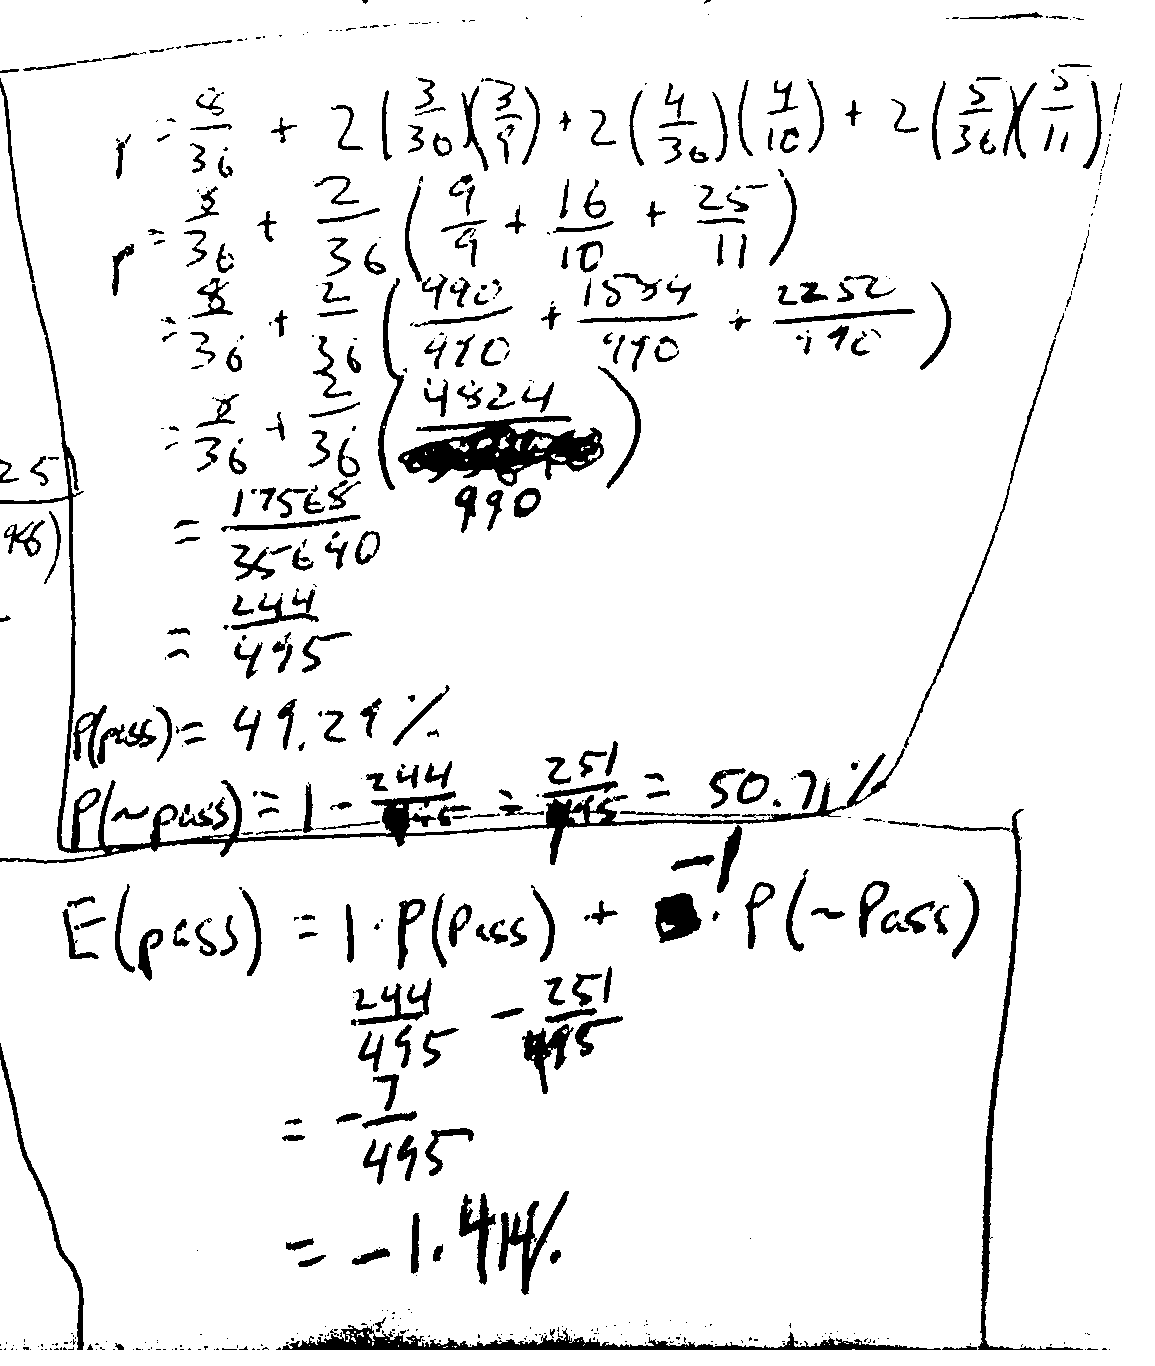 p = 8/36 + 2(3/36)(3/9) + 2(4/36)(4/10) + 2(5/36)(5/11)
p = 8/36 + 2/36 (9/9 + 16/10 + 25/11)
= 8/36 + 2/36 (990/990 + 1584/990 + 2252/990)
= 8/36 + 2/36 (4824/990)
25
= 17568/35640
= 244/495
P(pass) = 49.29%
P(~pass) = 1 - 244/495 = 251/495 = 50.71%
E(pass) = 1·P(Pass) + -1·P(~Pass)
244/495 - 251/495
= -7/495
= -1.414%